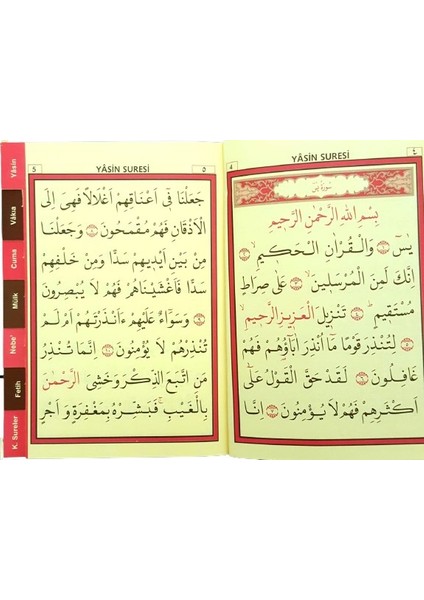 ٤
YÂSİN SURESİ
4
سُورَةُ يٰسٓ
بِسْمِ اللّٰهِ الرَّحْمٰنِ الرَّحِيمِ
يٰسٓ وَالْقُرْاٰنِ الْحَكِيمِ
اِنَّكَ لَمِنَ الْمُرْسَلِينَ عَلٰى صِرَاطٍ
مُسْتَقِيمٍ تَنْزِيلَ الْعَزِيزِ الرَّحِيمِ
لِتُنْذِرَ قَوْمًا مَٓا اُنْذِرَ اٰبَٓاؤُهُمْ فَهُمْ
غَافِلُونَ لَقَدْ حَقَّ الْقَوْلُ عَلٰٓى
اَكْثَرِهِمْ فَهُمْ لَا يُؤْمِنُونَ اِنَّا
5
YÂSİN SURESİ
٥
جَعَلْنَا فٓى اَعْنَاقِهِمْ اَغْلَالًا فَهِىَ اِلَى
الْاَذْقَانِ فَهُمْ مُقْمَحُونَ وَجَعَلْنَا
مِنْ بَيْنِ اَيْدِيهِمْ سَدًّا وَمِنْ خَلْفِهِمْ
سَدًّا فَاَغْشَيْنَاهُمْ فَهُمْ لَا يُبْصِرُونَ
وَسَوَٓاءٌ عَلَيْهِمْ ءَاَنْذَرْتَهُمْ اَمْ لَمْ
تُنْذِرْهُمْ لَا يُؤْمِنُونَ اِنَّمَا تُنْذِرُ
مَنِ اتَّبَعَ الذِّكْرَ وَخَشِىَ الرَّحْمٰنَ
بِالْغَيْبِ فَبَشِّرْهُ بِمَغْفِرَةٍ وَاَجْرٍ
Yâsin
Vâkıa
Cuma
Mülk
Nebe'
Fetih
K. Sureler